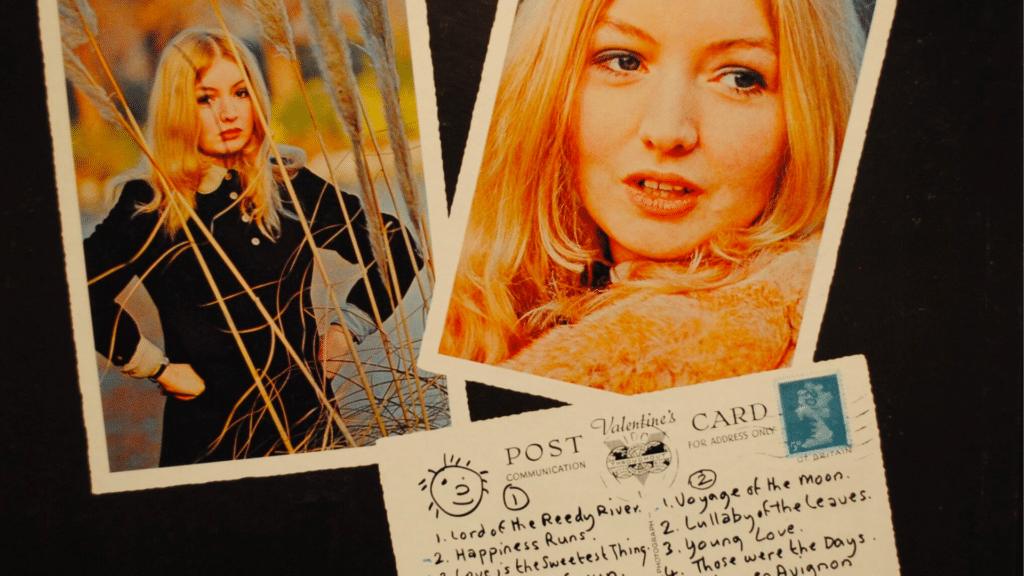 POST Valentine's CARD
COMMUNICATION
FOR ADDRESS ONLY
OF BRITAIN
1
1. Lord of the Reedy River.
2. Happiness Runs.
3. Love is the Sweetest Thing.
PHOTOGRAPH
2
1. Voyage of the Moon.
2. Lullaby of the Leaves.
3. Young Love.
4. Those were the Days.
Avignon